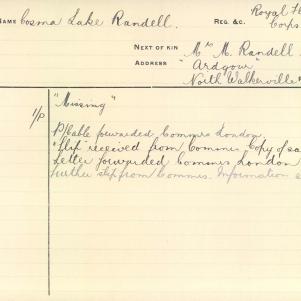 NAME Cosma Lake Randell. REG. &C. Royal Fl
Corps.
NEXT OF KIN Mrs M. Randell
ADDRESS "Ardgour"
North Walkerville
1/P "Missing"
P/cable forwarded Commrs London
"slip" received from Commrs Copy of sa
Letter forwarded Commrs London
Further slip from Commrs. Information